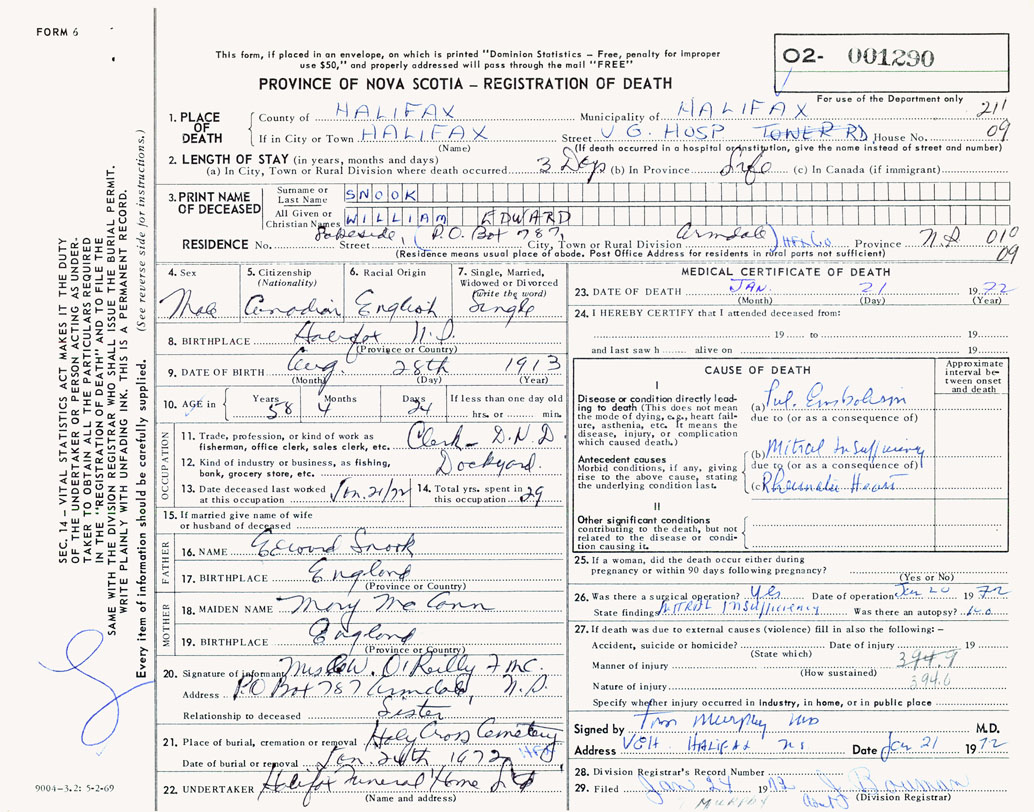 FORM 6
This form, if placed in an envelope, on which is printed "Dominion Statistics – Free, penalty for improper
use $50," and properly addressed will pass through the mail "FREE"
02- 001290
For use of the Department only
PROVINCE OF NOVA SCOTIA – REGISTRATION OF DEATH
1. PLACE OF DEATH
County of HALIFAX Municipality of HALIFAX 211
If in City or Town HALIFAX Street V G. HOSP TOWER RD House No. 09
(Name) (If death occurred in a hospital or institution, give the name instead of street and number)
2. LENGTH OF STAY (in years, months and days)
(a) In City, Town or Rural Division where death occurred 3 Days (b) In Province Life (c) In Canada (if immigrant)
3. PRINT NAME OF DECEASED
Surname or Last Name SNOOK
All Given or Christian Names WILLIAM EDWARD
RESIDENCE No. Lakeside, Street (P.O. Box 787, City, Town or Rural Division Armdale) HFX Co Province N.S 010
09
(Residence means usual place of abode. Post Office Address for residents in rural parts not sufficient)
4. Sex Male
5. Citizenship (Nationality) Canadian
6. Racial Origin English
7. Single, Married, Widowed or Divorced (write the word) Single
8. BIRTHPLACE Halifax N.S
(Province or Country)
9. DATE OF BIRTH Aug. 28th 1913
(Month) (Day) (Year)
10. AGE in Years 58 Months 4 Days 24 If less than one day old
hrs. or min.
OCCUPATION
11. Trade, profession, or kind of work as fisherman, office clerk, sales clerk, etc. Clerk - D.N.D
12. Kind of industry or business, as fishing, bank, grocery store, etc. Dockyard.
13. Date deceased last worked at this occupation Jan. 21/72 14. Total yrs. spent in this occupation 29
15. If married give name of wife
or husband of deceased
FATHER
16. NAME Edward Snook
17. BIRTHPLACE England
(Province or Country)
MOTHER
18. MAIDEN NAME Mary McCann
19. BIRTHPLACE England
(Province or Country)
20. Signature of informant W. O'Reilly
Address P.O Box 787 Armdale, N.S.
Relationship to deceased Sister
21. Place of burial, cremation or removal Holy Cross Cemetery
Date of burial or removal Jan. 24th 1972 HFX
22. UNDERTAKER Halifax Funeral Home Ltd
(Name and address)
MEDICAL CERTIFICATE OF DEATH
23. DATE OF DEATH JAN. 21 1972
(Month) (Day) (Year)
24. I HEREBY CERTIFY that I attended deceased from:
19 to 19
and last saw h alive on 19
CAUSE OF DEATH
Approximate interval between onset and death
I
Disease or condition directly leading to death (This does not mean the mode of dying, e.g., heart failure, asthenia, etc. It means the disease, injury, or complication which caused death.)
(a) Pul. Embolism
due to (or as a consequence of)
Antecedent causes
Morbid conditions, if any, giving rise to the above cause, stating the underlying condition last.
(b) Mitral Insufficiency
due to (or as a consequence of)
(c) Rheumatic Heart
II
Other significant conditions
contributing to the death, but not related to the disease or condition causing it.
25. If a woman, did the death occur either during
pregnancy or within 90 days following pregnancy?
(Yes or No)
26. Was there a surgical operation? Yes Date of operation Jan 20 1972
State findings MITRAL INSUFFICIENCY Was there an autopsy? No
27. If death was due to external causes (violence) fill in also the following: –
Accident, suicide or homicide? Date of injury 19
(State which)
Manner of injury 394.9
(How sustained)
Nature of injury 394.0
Specify whether injury occurred in industry, in home, or in public place
Signed by Murphy M.D.
Address VGH. HALIFAX NS Date Jan 21 1972
28. Division Registrar's Record Number
29. Filed Jan 24 1972 J. Bowman
MURRAY (Division Registrar)
SEC. 14 – VITAL STATISTICS ACT MAKES IT THE DUTY
OF THE UNDERTAKER OR PERSON ACTING AS UNDER-
TAKER TO OBTAIN ALL THE PARTICULARS REQUIRED
IN THE "REGISTRATION OF DEATH" AND TO FILE THE
SAME WITH THE DIVISION REGISTRAR WHO SHALL ISSUE THE BURIAL PERMIT.
WRITE PLAINLY WITH UNFADING INK. THIS IS A PERMANENT RECORD.
Every item of information should be carefully supplied. (See reverse side for instructions.)
9004-3.2: 5-2-69